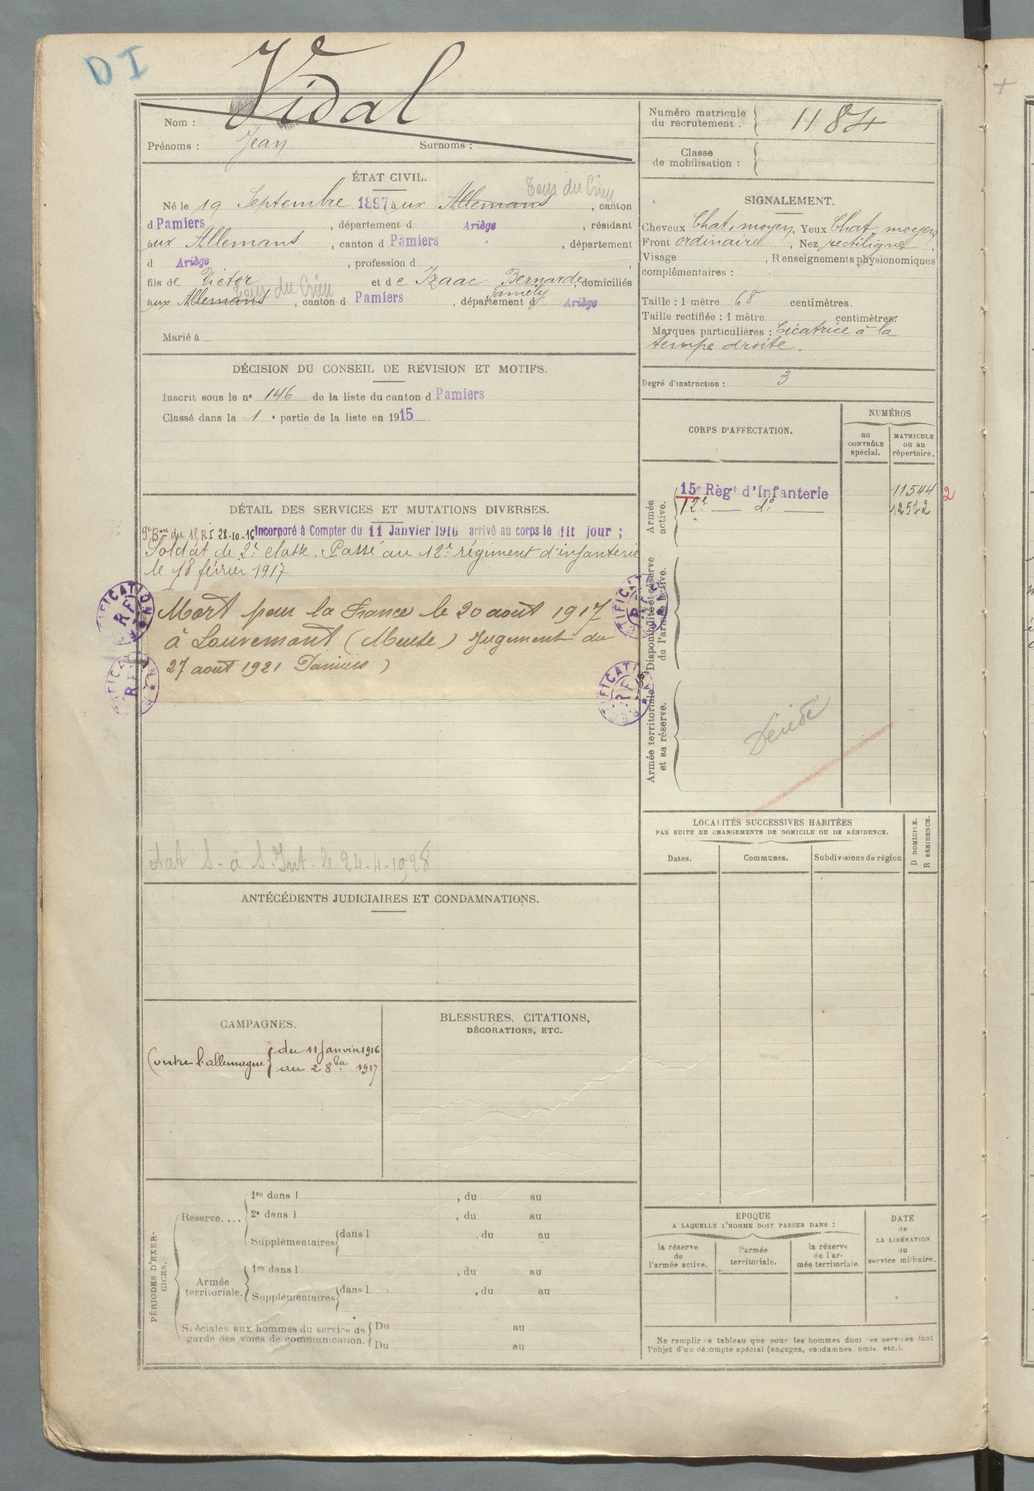 DI
Nom : Vidal
Prénoms : Jean Surnoms :
ÉTAT CIVIL.
Né le 19 Septembre 1897 aux Allemans, canton
d Pamiers, département d Ariège, résidant
aux Allemans, canton d Pamiers, département
d Ariège, profession d
fils de Victor et de Izaac Bernarde, domiciliés
aux Allemans, canton d Pamiers, département d Ariège
Marié à
DÉCISION DU CONSEIL DE REVISION ET MOTIFS.
Inscrit sous le nº 146 de la liste du canton d Pamiers
Classé dans la 1e partie de la liste en 1915
DÉTAIL DES SERVICES ET MUTATIONS DIVERSES.
28-10-16 Incorporé à Compter du 11 Janvier 1916 arrivé au corps le dit jour ;
Soldat de 2e classe. Passé au 12e régiment d'infanterie
le 18 février 1917
Mort pour la France le 20 août 1917
à Louvemont (Meuse) Jugement du
27 août 1921 Pamiers )
24-4-1928
ANTÉCÉDENTS JUDICIAIRES ET CONDAMNATIONS.
CAMPAGNES.
Contre l'allemagne { du 11 Janvier 1916
au 28 1917
BLESSURES, CITATIONS,
DÉCORATIONS, ETC.
PÉRIODES D'EXERCICES.
Réserve....
1re dans l , du au
2e dans l , du au
Supplémentaires { dans l , du au
Armée territoriale.
1re dans l , du au
Supplémentaires { dans l , du au
Spéciales aux hommes du service de
garde des voies de communication.
Du au
Du au
Numéro matricule
du recrutement : 1184
Classe
de mobilisation :
SIGNALEMENT.
Cheveux Chat. moyen, Yeux Chat moyen
Front ordinaire, Nez rectiligne
Visage , Renseignements physionomiques
complémentaires :
Taille : 1 mètre 68 centimètres.
Taille rectifiée : 1 mètre centimètres.
Marques particulières : Cicatrice à la
tempe droite.
Degré d'instruction : 3
CORPS D'AFFECTATION.
NUMÉROS
au
CONTRÔLE
spécial.
MATRICULE
OU AU
répertoire.
Armée
active.
15e Régt d'Infanterie 11544
12e — do — 12572
2
Disponibilité et réserve
de l'armée active.
Armée territoriale
et sa réserve.
LOCALITÉS SUCCESSIVES HABITÉES
PAR SUITE DE CHANGEMENTS DE DOMICILE OU DE RÉSIDENCE.
Dates.
Communes.
Subdivisions de région
D DOMICILE.
R RÉSIDENCE.
EPOQUE
A LAQUELLE L'HOMME DOIT PASSER DANS :
la réserve
de
l'armée active.
l'armée
territoriale.
la réserve
de l'ar-
mée territoriale.
DATE
de
LA LIBÉRATION
du
service militaire.
Ne remplir ce tableau que pour les hommes dont les services font
l'objet d'un décompte spécial (engagés, condamnés, omis, etc.).